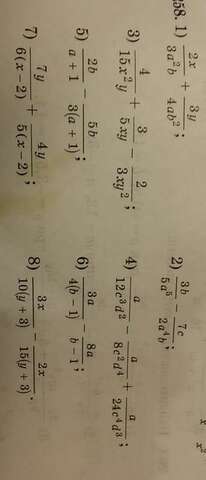 58. 1) 2x/(3a²b) + 3y/(4ab²); 2) 3b/(5a⁵) − 7c/(2a⁴b);
3) 4/(15x²y) + 3/(5xy) − 2/(3xy²); 4) a/(12c³d²) − a/(8c²d⁴) + a/(24c⁴d³);
5) 2b/(a + 1) − 5b/(3(a + 1)); 6) 3a/(4(b − 1)) − 8a/(b − 1);
7) 7y/(6(x − 2)) + 4y/(5(x − 2)); 8) 3x/(10(y + 3)) − 2x/(15(y + 3)).